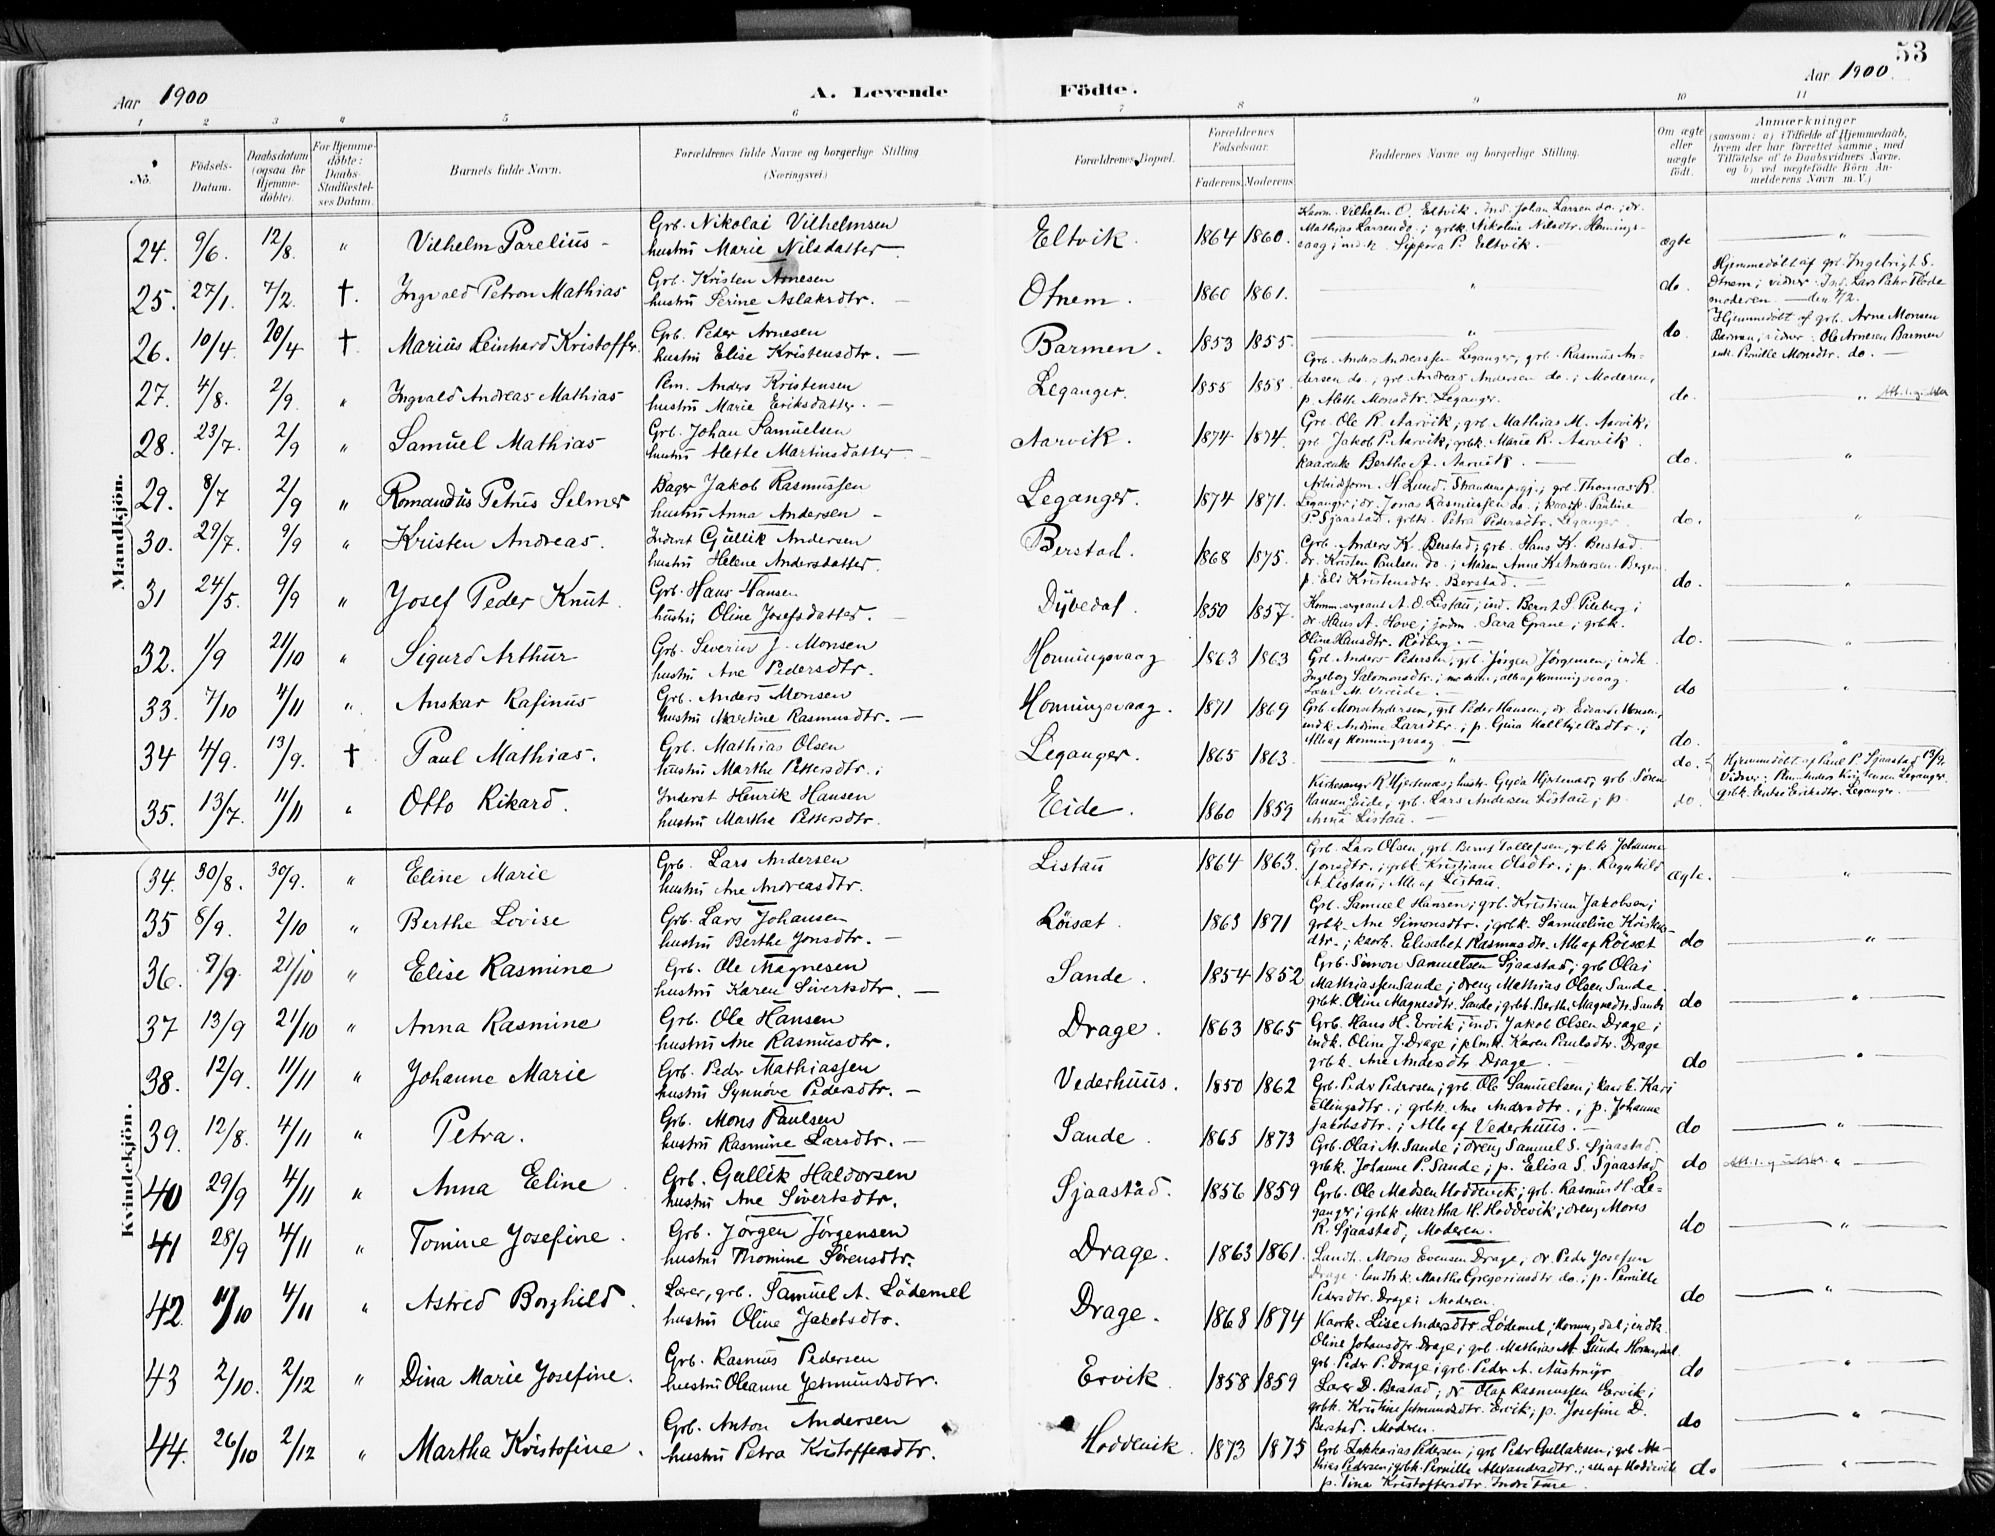 53
Aar 1900 A. Levende Födte. Aar 1900.
1 2 3 4 5 6 7 8 9 10 11
No. Födsels-Datum. Daabsdatum (ogsaa for Hjemme-döbte). For Hjemme-döbte: Daabs-Stadfæstel-ses Datum. Barnets fulde Navn. Forældrenes fulde Navne og borgerlige Stilling (Næringsvei.) Forældrenes Bopæl. Forældrenes Födselsaar. Faderens. Moderens. Faddernes Navne og borgerlige Stilling. Om ægte eller uægte födt. Anmærkninger
(saasom: a) i Tilfælde af Hjemmedaab,
hvem der har forrettet samme, med
Tilföielse af to Daabsvidners Navne,
og b) ved uægtefödte Börn An-
melderens Navn m. V.)
Mandkjön.
24. 9/6. 12/8. " Vilhelm Parelius - Grb. Nikolai Vilhelmsen
hustru Marie Nilsdatter. Eltvik. 1864 1860. ægte "
Kaarm. Vilhelm O. Eltvik. Ind. Johan Larsen do.; dr.
Mathias Larsen do.; grbk. Nikoline Nilsdtr. Honnings-
vaag; ind.k. Sippora P. Eltvik.
25. 27/1. 7/2. †. Ingvald Petron Mathias Grb. Kristen Arnesen
hustru Serine Aslaksdtr. Otnem. 1860 1861. " do.
Hjemmedøbt af grb. Ingebrigt S.
Otnem; vidner: Ind. Lars Flöde
moderen. — den 7/2.
26. 10/4. 20/4 †. Marius Reinhard Kristoffer. Grb. Peder Arnesen
hustru Elise Kristensdtr. Barmen. 1853 1855. " do.
Hjemmedøbt af grb. Arne Monsen
Barmen; vidner: Ole Arnesen Barmen
enk. Pernille Monsdtr. do.
27. 4/8. 2/9. " Ingvald Andreas Mathias Pem. Anders Kristensen
hustru Marie Eriksdatter. Leganger. 1855 1858. do. "
Grb. Anders Anderssen Leganger, grb. Rasmus An-
dersen do., grb Andreas Andersen do.; Moderen,
p. Alethe Monsdtr. Leganger.
28. 23/7. 2/9 " Samuel Mathias Grb. Johan Samuelsen
hustru Alette Martinsdatter. Aarvik. 1874 1874. do. "
Grb. Ole R. Aarvik; grb Mathias M. Aarvik;
grb. Jakob P. Aarvik; grbk. Maria R. Aarvik.
kaarenke Berthe A. Aarvik.
29. 8/7 2/9 " Romandus Petrus Selmer Bager Jakob Rasmussen
hustru Anna Andersen Leganger. 1874 1871. do. "
Arbeidsform. H. Lund. grb. Thomas R.
Leganger; dr. Jonas Rasmussen do.; kaark. Pauline
P. Sjaastad. grbk. Petra Pedersdtr. Leganger.
30. 29/7. 9/9 " Kristen Andreas. Inderst Gullik Andersen
hustru Helene Andersdatter. Berstad. 1868 1875. do. "
Grb. Anders K. Berstad; grb. Hans K. Berstad
dr. Kristen Paulsen do.; Madam Anne K. Andersen Bergen
p. Eli Kristensdtr. Berstad.
31 24/5. 9/9 " Josef Peder Knut. Grb. Hans Hansen
hustru Oline Josefsdatter. Dybedal. 1850 1857. do. "
A. O. Listau; ind. Bernt S. Pileberg;
dr Hans A. Hove; jordm. Sara Grane; grbk.
Oline Hansdtr. Rödberg.
32. 1/9 21/10 " Sigurd Arthur Grb. Severin J. Monsen
hustru Ane Pedersdtr. Honningsvaag 1863 1863 do "
Grb. Anders Pedersen, grb. Jörgen Jörgensen; indk
Ingeborg Salomonsdtr.; moderen, alle af Honningsvaag.
Lærer M. Vereide.
33. 7/10 4/11 " Anskar Rafinus Grb. Anders Monsen
hustru Martine Rasmusdtr. Honningsvaag. 1871 1869 do. "
Grb. Mons Andersen, grb Peder Hansen; dr. Edvard Monsen,
indk. Andrine Larsdtr.; p. Guria Halkjelsdtr.;
Alle af Honningsvaag.
34 4/9. 13/9. † Paul Mathias. Grb. Mathias Olsen
hustru Marthe Pettersdtr. Leganger. 1865 1863. " do.
Hjemmedöbt af Paul P. Sjaastad 13/9.
Vidner: Pem. Anders Kristensen Leganger
grbk. Eriksdtr. Leganger.
35. 13/7. 11/11 " Otto Rikard. Inderst Henrik Hansen
hustru Martha Pettersdtr. Eide. 1860 1859 do.
Kirkesanger R. Hjertenæs; hustr. Gyda Hjertenæs, grb Sören
Hansen Eide, grb. Lars Andersen Listau; p.
Anna Listau.
Kvindekjön.
34. 30/8. 30/9. " Eline Marie Grb. Lars Andersen
hustru Ane Andreasdtr. Listau 1864 1863. ægte. "
Grb. Lars Olsen, grb. Bernt Tollefsen, grbk Johanne
Jonsdtr.; grbk. Kristiane Olsdtr.; p. Ragnhild
A. Listau; Alle af Listau.
35 8/9. 2/10 " Berthe Lovise Grb. Lars Johansen
hustru Berthe Jonsdtr. Röisæt. 1863 1871 do "
Grb. Samuel Hansen; grb. Kristian Jakobsen;
grbk. Ane Simonsdtr.; grbk. Samueline Kristens-
dtr.; kaark. Elisabet Rasmusdtr. Alle af Röisæt
36. 9/9. 21/10 " Elise Rasmine Grb. Ole Magnesen
hustru Karen Sivertsdtr. Sande. 1854 1852 do "
Grb. Simon Samuelsen Sjaastad; grb Olai
Mathiassen Sande; dreng Mathias Olsen Sande.
grbk. Oline Magnesdtr. Sande; grbk. Berthe Magnesdtr. Sande
37 13/9 21/10 " Anna Rasmine Grb. Ole Hansen
hustru Ane Rasmusdtr. Drage. 1863 1865 do "
Grb. Hans H. Ervik; ind. Jakob Olsen Drage;
indk. Oline J. Drage; Karen Paulsdtr. Drage
grbk. Ane Andersdtr Drage.
38. 12/9. 11/11 " Johanne Marie Grb. Peder Mathiassen
hustru Synnöve Pedersdtr. Vederhuus. 1850 1862 do "
Grb. Peder Pedersen; grb. Ole Samuelsen; kaark. Kari
Ellingsdtr.; grbk. Ane Andersdtr.; p. Johanne
Jakobsdtr.; Alle af Vederhuus.
39. 12/8. 4/11 " Petra. Grb. Mons Paulsen
hustru Rasmine Larsdtr. Sande. 1865 1873 do "
Grb. Olai M. Sande; dreng Samuel S. Sjaastad.
grbk. Johanne P. Sande; p. Elisa S. Sjaastad
40 29/9 4/11 " Anna Eline Grb. Gullik Haldorsen
hustru Ane Sivertsdtr. Sjaastad. 1856 1859 do "
Grb. Ole Madsen Hoddevik; grb. Rasmus H. Le-
ganger; grbk. Martha H. Hoddevik; dreng Mons
R. Sjaastad, Moderen.
41 28/9 4/11 " Tomine Josefine. Grb. Jörgen Jörgensen
hustru Thomine Sörensdtr. Drage. 1863 1861. do "
Landh. Mons Evensen Drage; dr. Peder Josefsen
Drage; landhk. Marthe Gregoriusdtr do.; p. Pernille
Pedersdtr. Drage; Moderen.
42. 11/10 4/11 " Astred Borghild. Lærer, grb. Samuel A. Lödemel
hustru Oline Jakobsdtr. Drage. 1868 1874 do "
Kaark. Lise Andersdtr. Lödemel, Hornindal; indk.
Oline Johansdtr Drage; grb. Mathias M. Sunde Hornindal.
grb. Peder P. Drage; grb. Peder A. Austmyr
43 2/10. 2/12 " Dina Marie Josefine. Grb. Rasmus Pedersen
hustru Oleanne Jetmundsdtr. Ervik 1858 1859 do "
Lærer D. Berstad; dr Olaf Rasmussen Ervik;
grbk. Kristine Jetmundsdtr. Ervik; p. Josefine D.
Berstad. Moderen.
44. 26/10 2/12 " Martha Kristofine. Grb. Anton Andersen
hustru Petra Kristoffersdtr. Hoddevik. 1873 1875 do "
Grb. Sakkarias Pedersen; grb Peder Gullaksen; grb. Ma-
thias Pedersen; grbk. Pernille Alexandersdtr.; alle af Hoddevik
p. Tina Kristoffersdtr. Indre Fure.